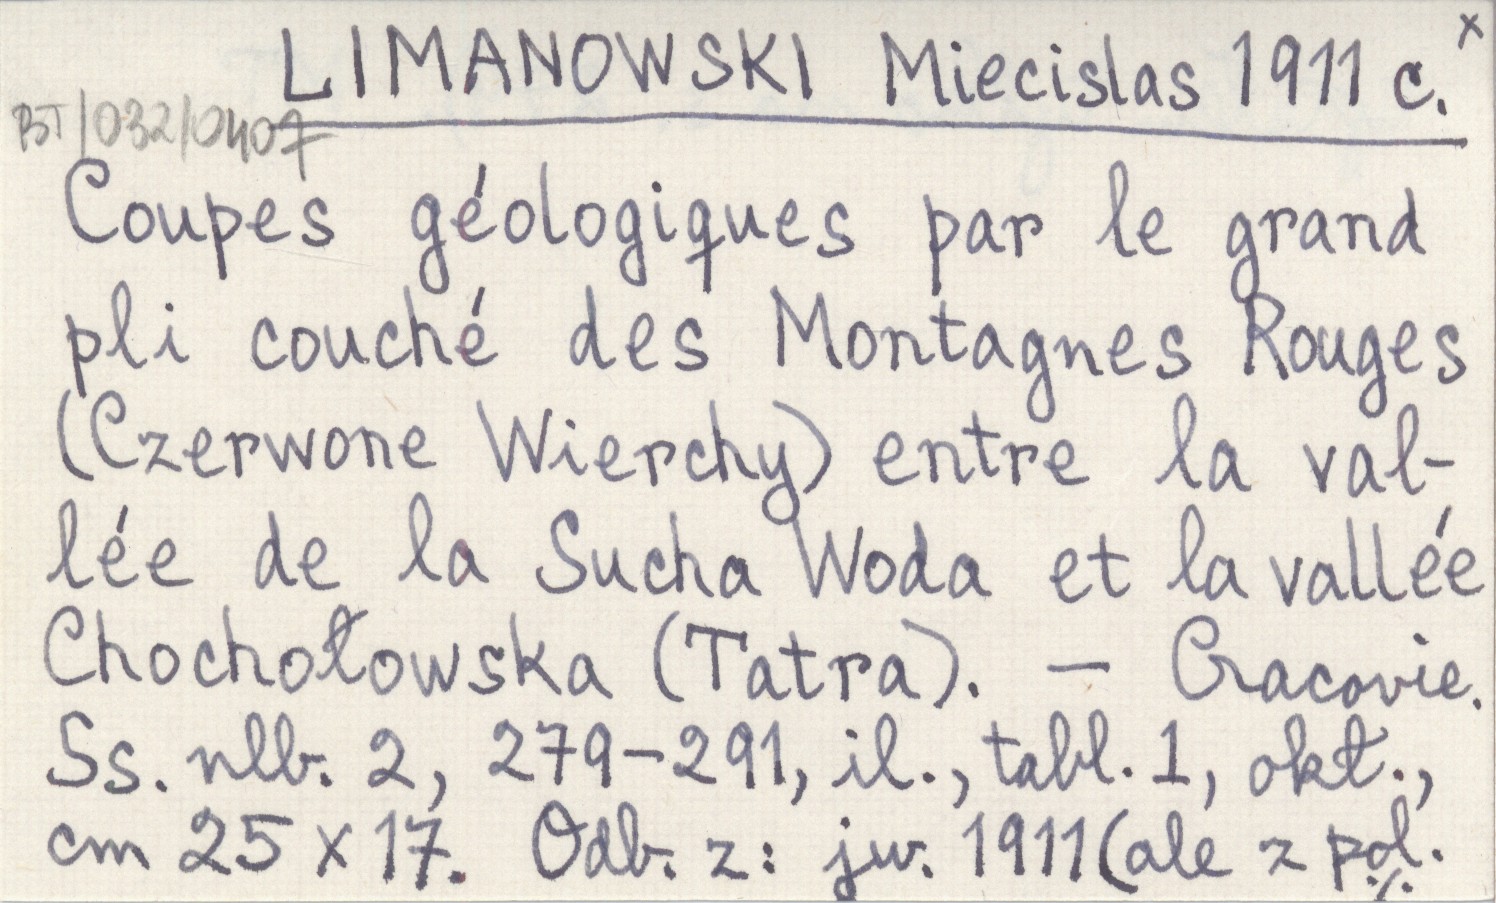 LIMANOWSKI Miecislas 1911 c. x
BT/032/0407
Coupes géologiques par le grand
pli couché des Montagnes Rouges
(Czerwone Wierchy) entre la val-
lée de la Sucha Woda et la vallée
Chochołowska (Tatra). — Cracovie.
Ss. nlb. 2, 279-291, il., tabl. 1, okł.,
cm 25 x 17. Odb. z: jw. 1911 (ale z pol.
./.